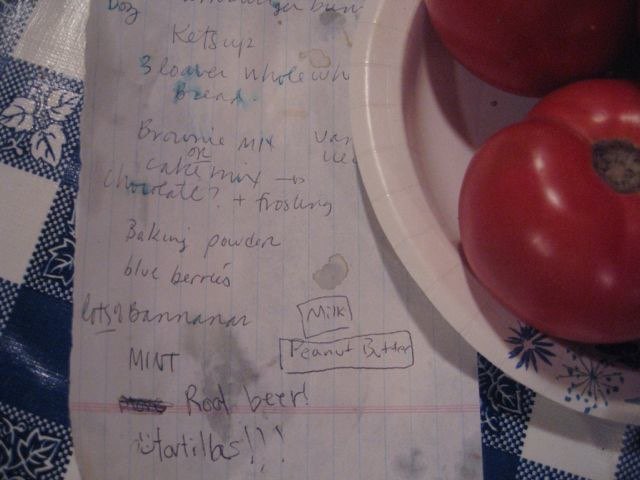 Doz
Ketsup
3 loaves whole wh
Bread
Brownie MIX
or
cake mix →
chocolate? + frosting
Baking powder
blue berries
lots! Bannanas
Milk
MINT
Peanut Butter
Root beer!
tortillas!!!